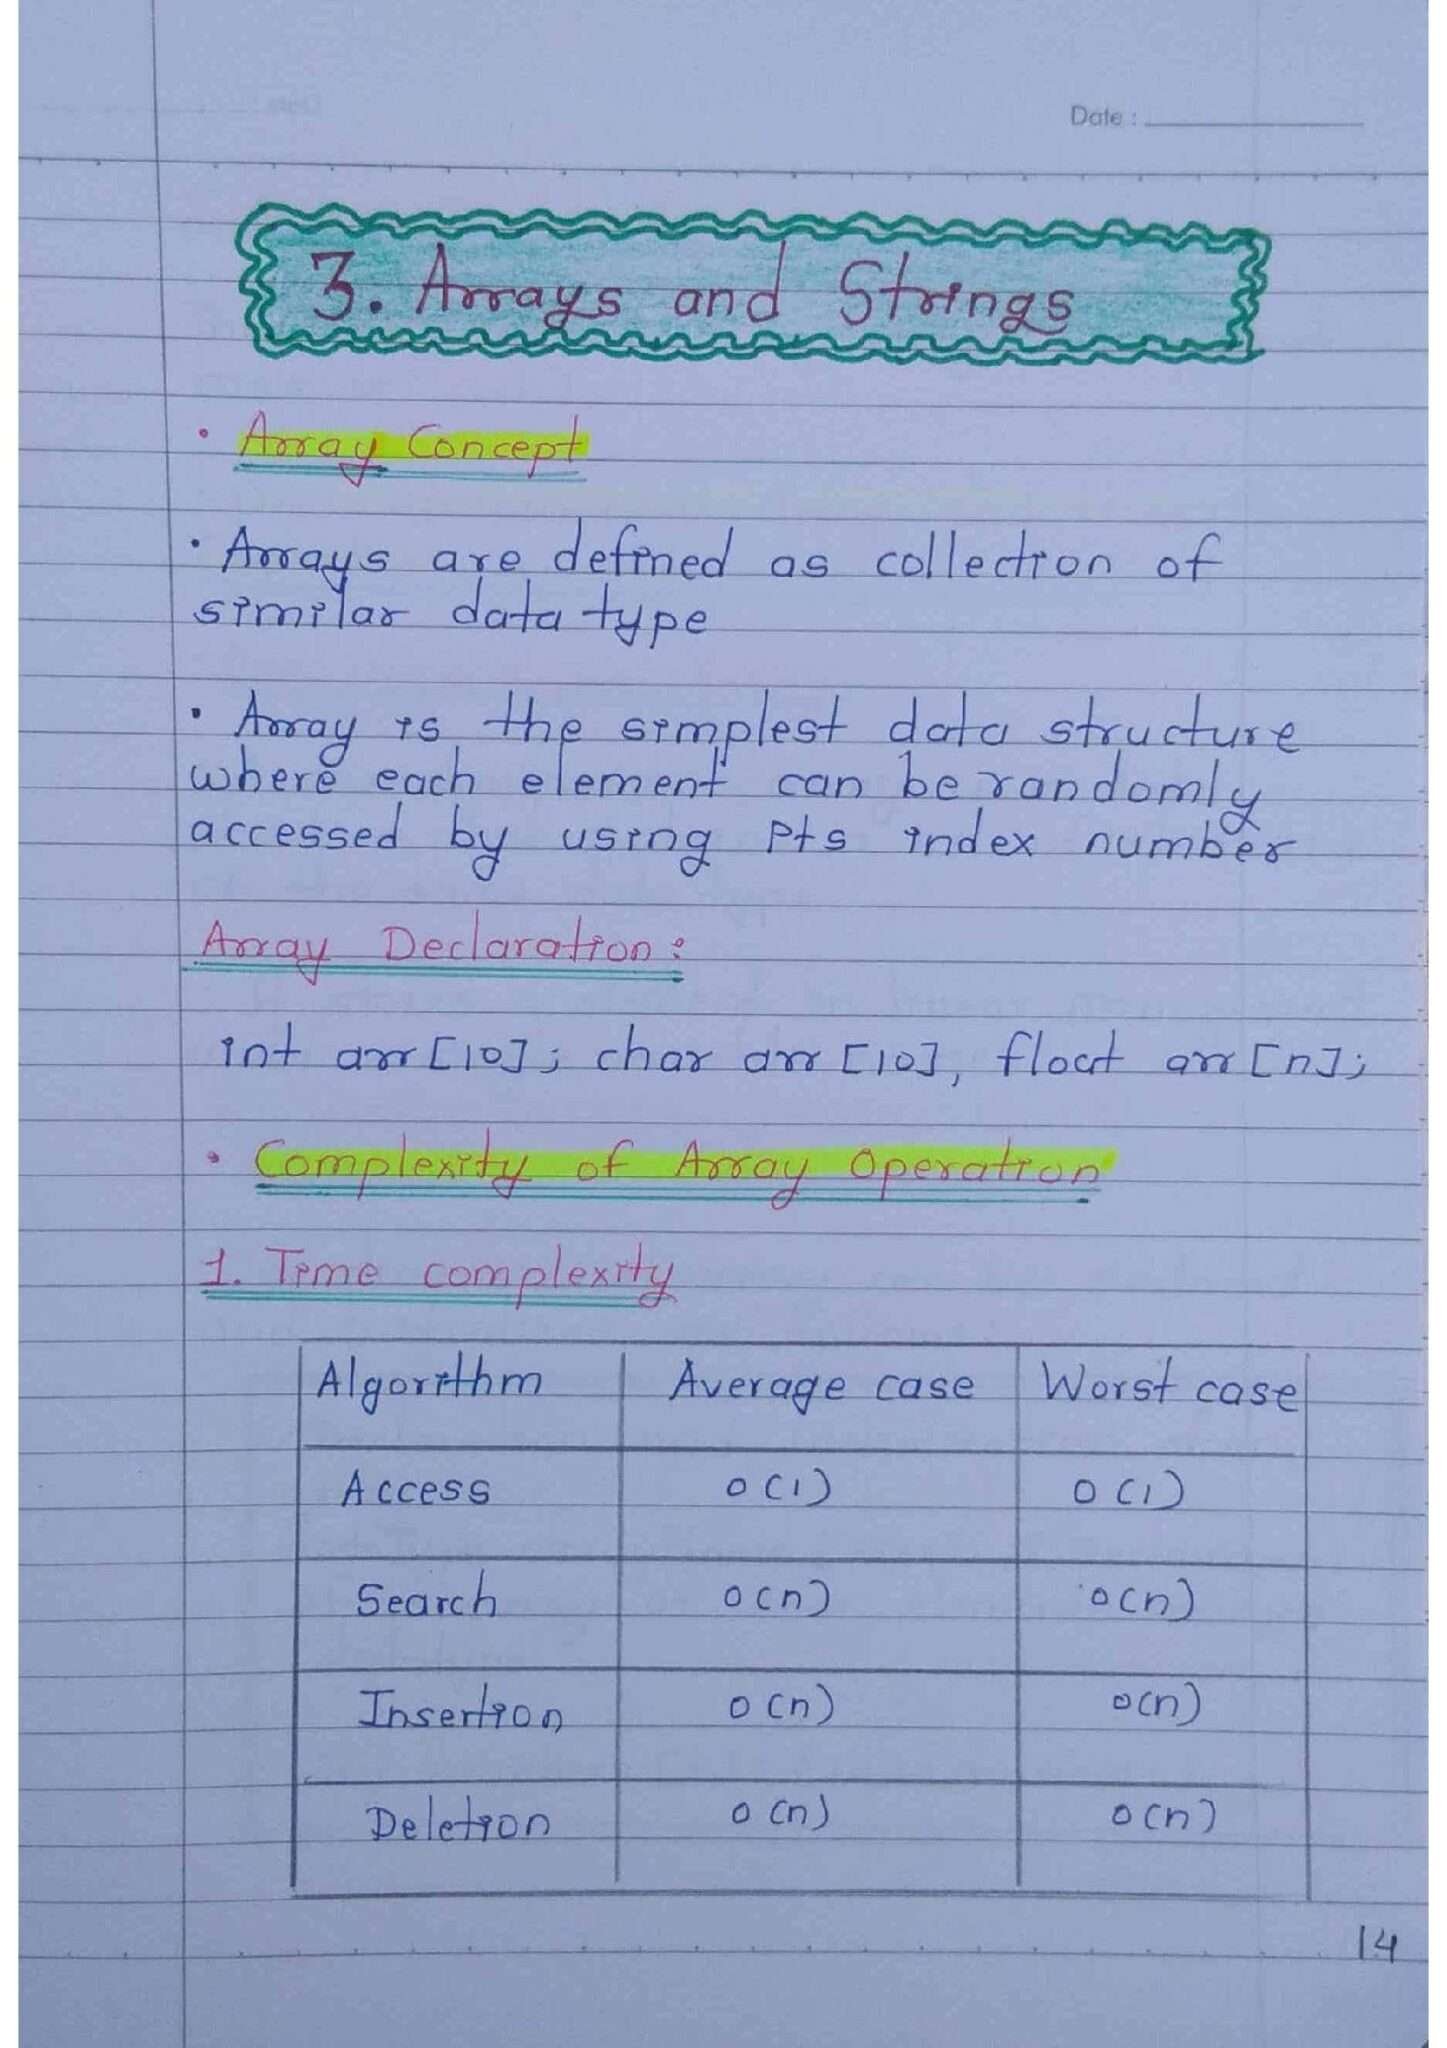 Date :
3. Arrays and Strings
• Array Concept
• Arrays are defined as collection of
similar data type
• Array is the simplest data structure
where each element can be randomly
accessed by using its index number
Array Declaration:
int arr [10]; char arr [10], float arr [n];
• Complexity of Array Operation
1. Time complexity
Algorithm Average case Worst case
Access O(1) O(1)
Search O(n) O(n)
Insertion O(n) O(n)
Deletion O(n) O(n)
14